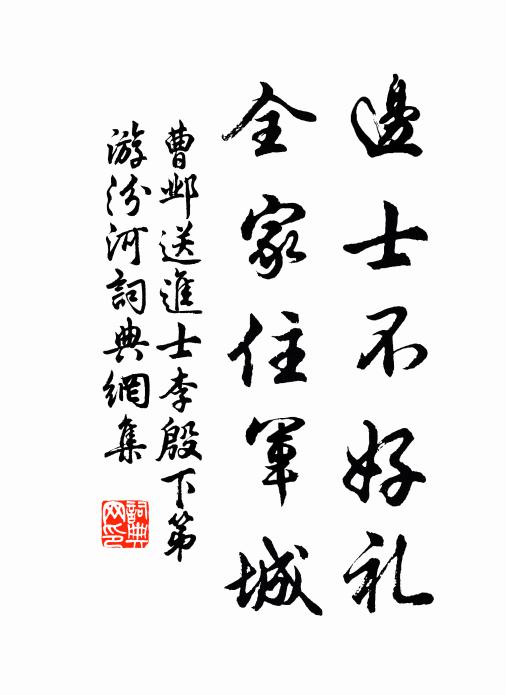 邊士不好礼
全家住軍城
曹邺送進士李殷下第
游汾河詞典網集
詞典网印